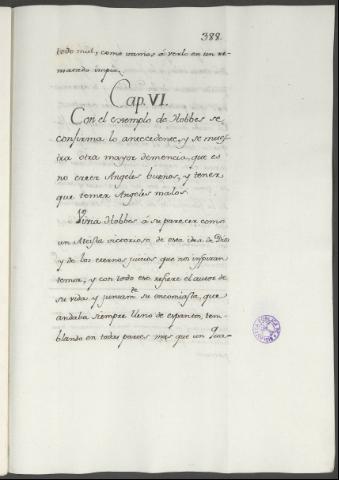 388.
todo mal, como vamos á verlo en un re-
matado impio.
Cap. VI.
Con el exemplo de Hobbes se
confirma lo antecedente, y se mues-
tra otra mayor demencia, que es
no creer Angeles buenos, y tener
que temer Angeles malos.
Vivia Hobbes á su parecer como
un Ateista victorioso de esta idea de Dios
y de los eternos juicios que nos inspiran
temor, y con todo eso refiere el autor de
su vida y juntamte. su encomiasta, que
andaba siempre lleno de espantos, tem-
blando en todas partes mas que un